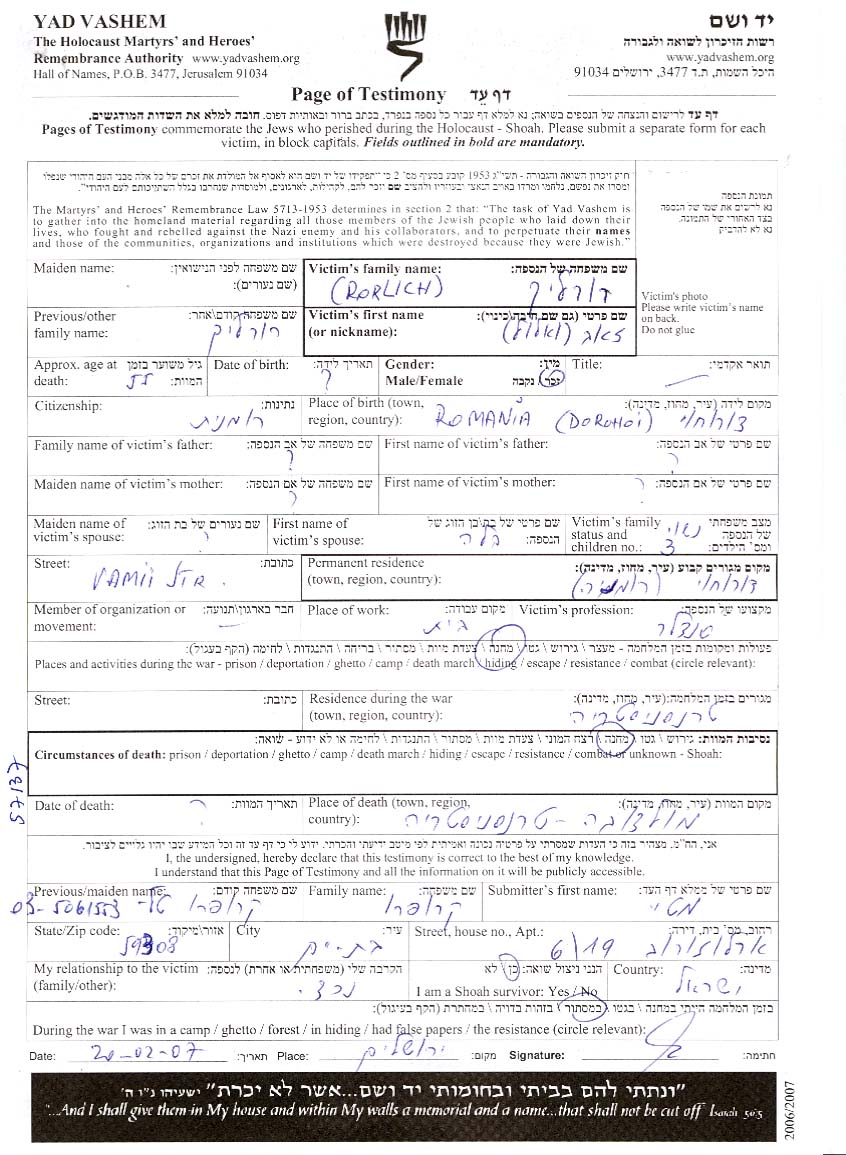 YAD VASHEM
The Holocaust Martyrs' and Heroes'
Remembrance Authority www.yadvashem.org
Hall of Names, P.O.B. 3477, Jerusalem 91034
יד ושם
רשות הזיכרון לשואה ולגבורה
www.yadvashem.org
היכל השמות, ת.ד 3477, ירושלים 91034
Page of Testimony דף עד
דף עד לרישום והנצחה של הנספים בשואה; נא למלא דף עבור כל נספה בנפרד, בכתב ברור ובאותיות דפוס. חובה למלא את השדות המודגשים.
Pages of Testimony commemorate the Jews who perished during the Holocaust - Shoah. Please submit a separate form for each
victim, in block capitals. Fields outlined in bold are mandatory.
חוק זיכרון השואה והגבורה - תשי"ג 1953 קובע בסעיף מס' 2 כי "תפקידו של יד ושם הוא לאסוף אל המולדת את זכרם של כל אלה מבני העם היהודי שנפלו
ומסרו את נפשם, נלחמו ומרדו באויב הנאצי ובעוזריו ולהציב שם וזכר להם, לקהילות, לארגונים, ולמוסדות שנחרבו בגלל השתייכותם לעם היהודי".
The Martyrs' and Heroes' Remembrance Law 5713-1953 determines in section 2 that: "The task of Yad Vashem is
to gather into the homeland material regarding all those members of the Jewish people who laid down their
lives, who fought and rebelled against the Nazi enemy and his collaborators, and to perpetuate their names
and those of the communities, organizations and institutions which were destroyed because they were Jewish."
תמונת הנספה
נא לרשום את שמו של הנספה
בצד האחורי של התמונה.
נא לא להדביק
Victim's photo
Please write victim's name
on back.
Do not glue
Maiden name: שם משפחה לפני הנישואין:
(שם נעורים):
Victim's family name: שם משפחה של הנספה:
(RORLICH) רורליך
Previous/other שם משפחה קודם\אחר:
family name: רורליק
Victim's first name שם פרטי (גם שם חיבה\כינוי):
(or nickname): זאב (וולול)
Approx. age at גיל משוער בזמן
death: המוות: 55
Date of birth: תאריך לידה:
?
Gender: מין:
Male/Female זכר/ נקבה
Title: תואר אקדמי:
Citizenship: נתינות:
רומנית
Place of birth (town, מקום לידה (עיר, מחוז, מדינה):
region, country): ROMANIA (DOROHOI) דורוחוי
Family name of victim's father: שם משפחה של אב הנספה:
?
First name of victim's father: שם פרטי של אב הנספה:
?
Maiden name of victim's mother: שם משפחה של אם הנספה:
?
First name of victim's mother: שם פרטי של אם הנספה:
?
Maiden name of שם נעורים של בת הזוג:
victim's spouse: ?
First name of שם פרטי של בת\בן הזוג של
victim's spouse: הנספה: בלה
Victim's family מצב משפחתי
status and של הנספה נשוי
children no.: ומס' הילדים: 3
Street: כתובת:
VAMII STR.
Permanent residence מקום מגורים קבוע (עיר, מחוז, מדינה):
(town, region, country): דורוחוי (רומניה)
Member of organization or חבר בארגון\תנועה:
movement:
Place of work: מקום עבודה:
בית
Victim's profession: מקצועו של הנספה:
סנדלר
פעולות ומקומות בזמן המלחמה - מעצר \ גירוש \ גטו \ מחנה \ צעדת מוות \ מסתור \ בריחה \ התנגדות \ לחימה (הקף בעיגול):
Places and activities during the war - prison / deportation / ghetto / camp / death march / hiding / escape / resistance / combat (circle relevant):
Street: כתובת:
Residence during the war מגורים בזמן המלחמה:(עיר, מחוז, מדינה):
(town, region, country): טרנסניסטריה
נסיבות המוות: גירוש \ גטו \ מחנה \ רצח המוני \ צעדת מוות \ מסתור \ התנגדות \ לחימה או לא ידוע - שואה:
Circumstances of death: prison / deportation / ghetto / camp / death march / hiding / escape / resistance / combat or unknown - Shoah:
57137
Date of death: תאריך המוות:
?
Place of death (town, region, מקום המוות (עיר, מחוז, מדינה):
country): מולדובה - טרנסניסטריה
אני, הח"מ, מצהיר בזה כי העדות שמסרתי על פרטיה נכונה ואמיתית לפי מיטב ידיעתי והכרתי. ידוע לי כי דף עד זה וכל המידע שבו יהיו גלויים לציבור.
I, the undersigned, hereby declare that this testimony is correct to the best of my knowledge.
I understand that this Page of Testimony and all the information on it will be publicly accessible.
Previous/maiden name: שם משפחה קודם:
03-5061553 טל- קרופרו
Family name: שם משפחה:
קרופרו
Submitter's first name: שם פרטי של ממלא דף העד:
מטי
State/Zip code: אזור\מיקוד:
59308
City עיר:
בת-ים
Street, house no., Apt.: רחוב, מס' בית, דירה:
ארלוזורוב 6/19
My relationship to the victim הקרבה שלי (משפחתית או אחרת) לנספה:
(family/other): נכד
הנני ניצול שואה: כן / לא
I am a Shoah survivor: Yes / No
Country: מדינה:
ישראל
בזמן המלחמה הייתי במחנה \ בגטו \ במסתור \ בזהות בדויה \ במחתרת (הקף בעיגול):
During the war I was in a camp / ghetto / forest / in hiding / had false papers / the resistance (circle relevant):
Date: 20-02-07 תאריך: Place: ירושלים מקום: Signature: חתימה:
"ונתתי להם בביתי ובחומותי יד ושם...אשר לא יכרת" ישעיהו נ"ו ה'
"...And I shall give them in My house and within My walls a memorial and a name...that shall not be cut off" Isaiah 56:5
2006/2007